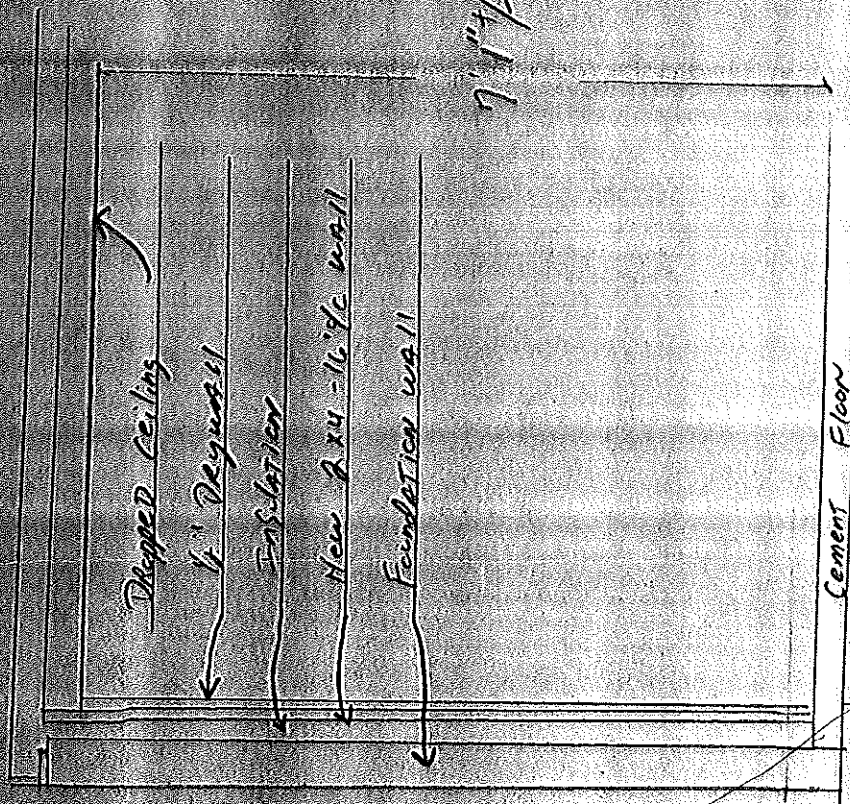 7'1"+/-
Dropped Ceiling
Drywall
Insulation
New 2x4-16"o/c wall
Foundation wall
Cement Floor